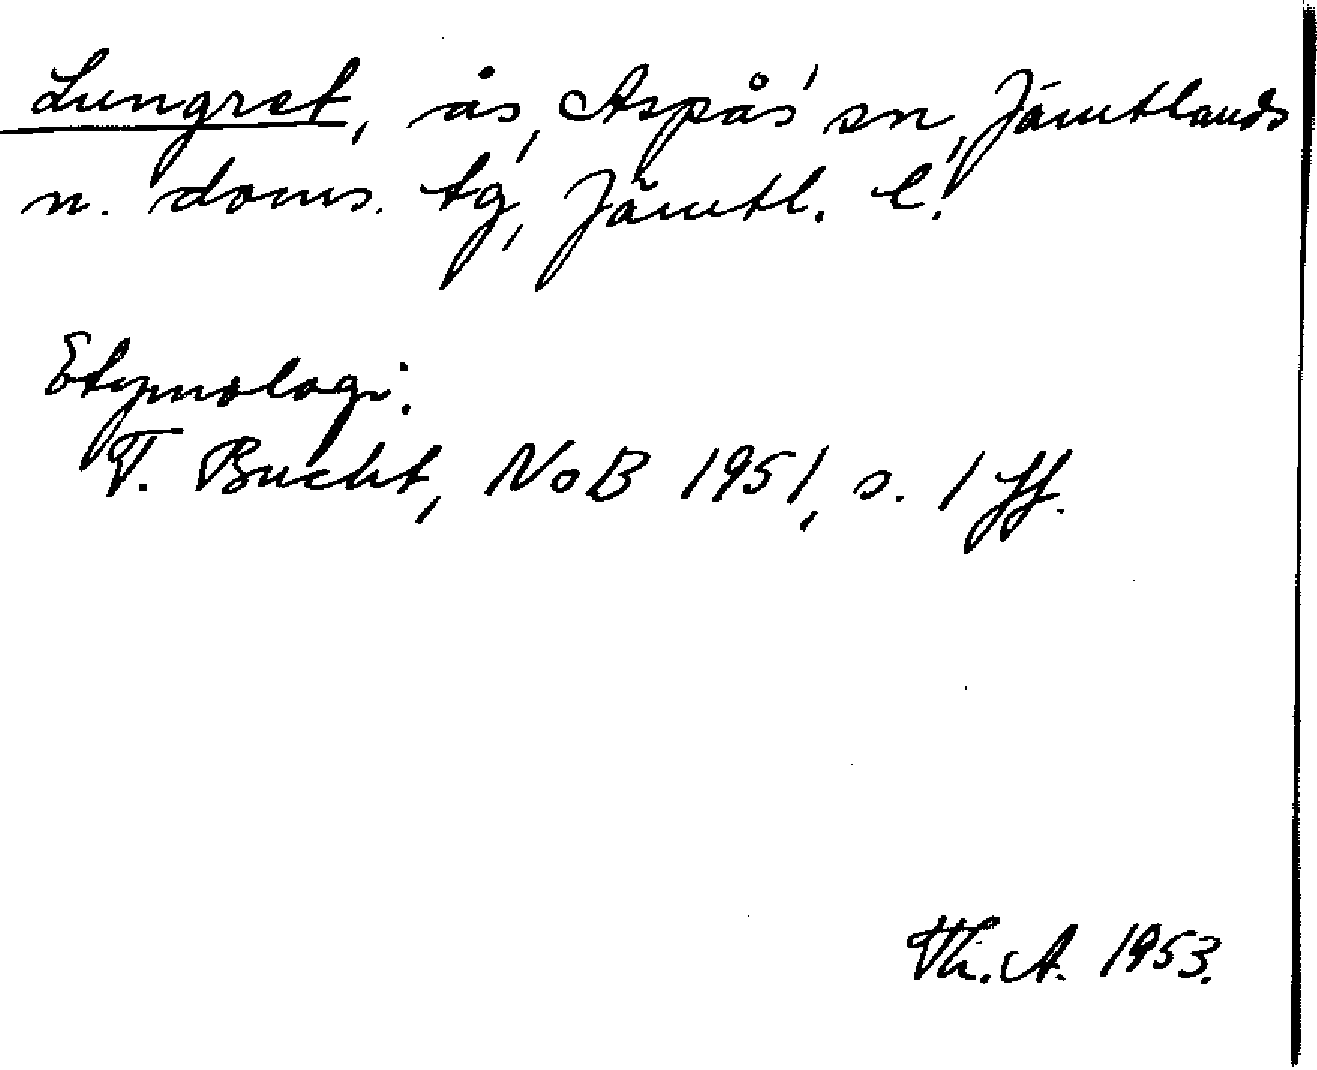 Lungret, ås, Aspås' sn, Jämtlands
n. doms. tg, Jämtl. l.
Etymologi:
T. Bucht, NoB 1951, s. 1 ff.
Th. A. 1953.